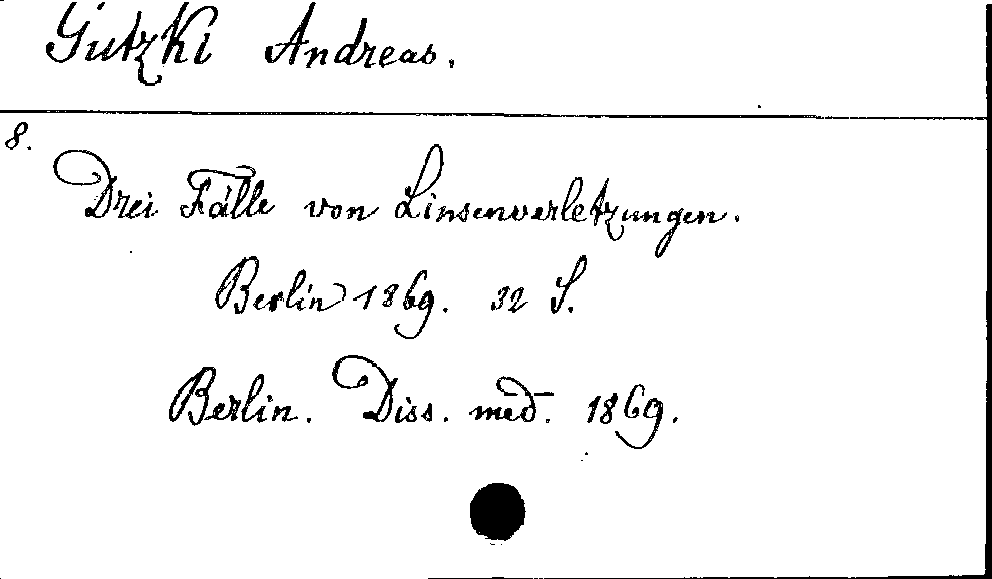 Gutzki Andreas.
8.
Drei Fälle von Linsenverletzungen.
Berlin 1869. 32 S.
Berlin. Diss. med. 1869.